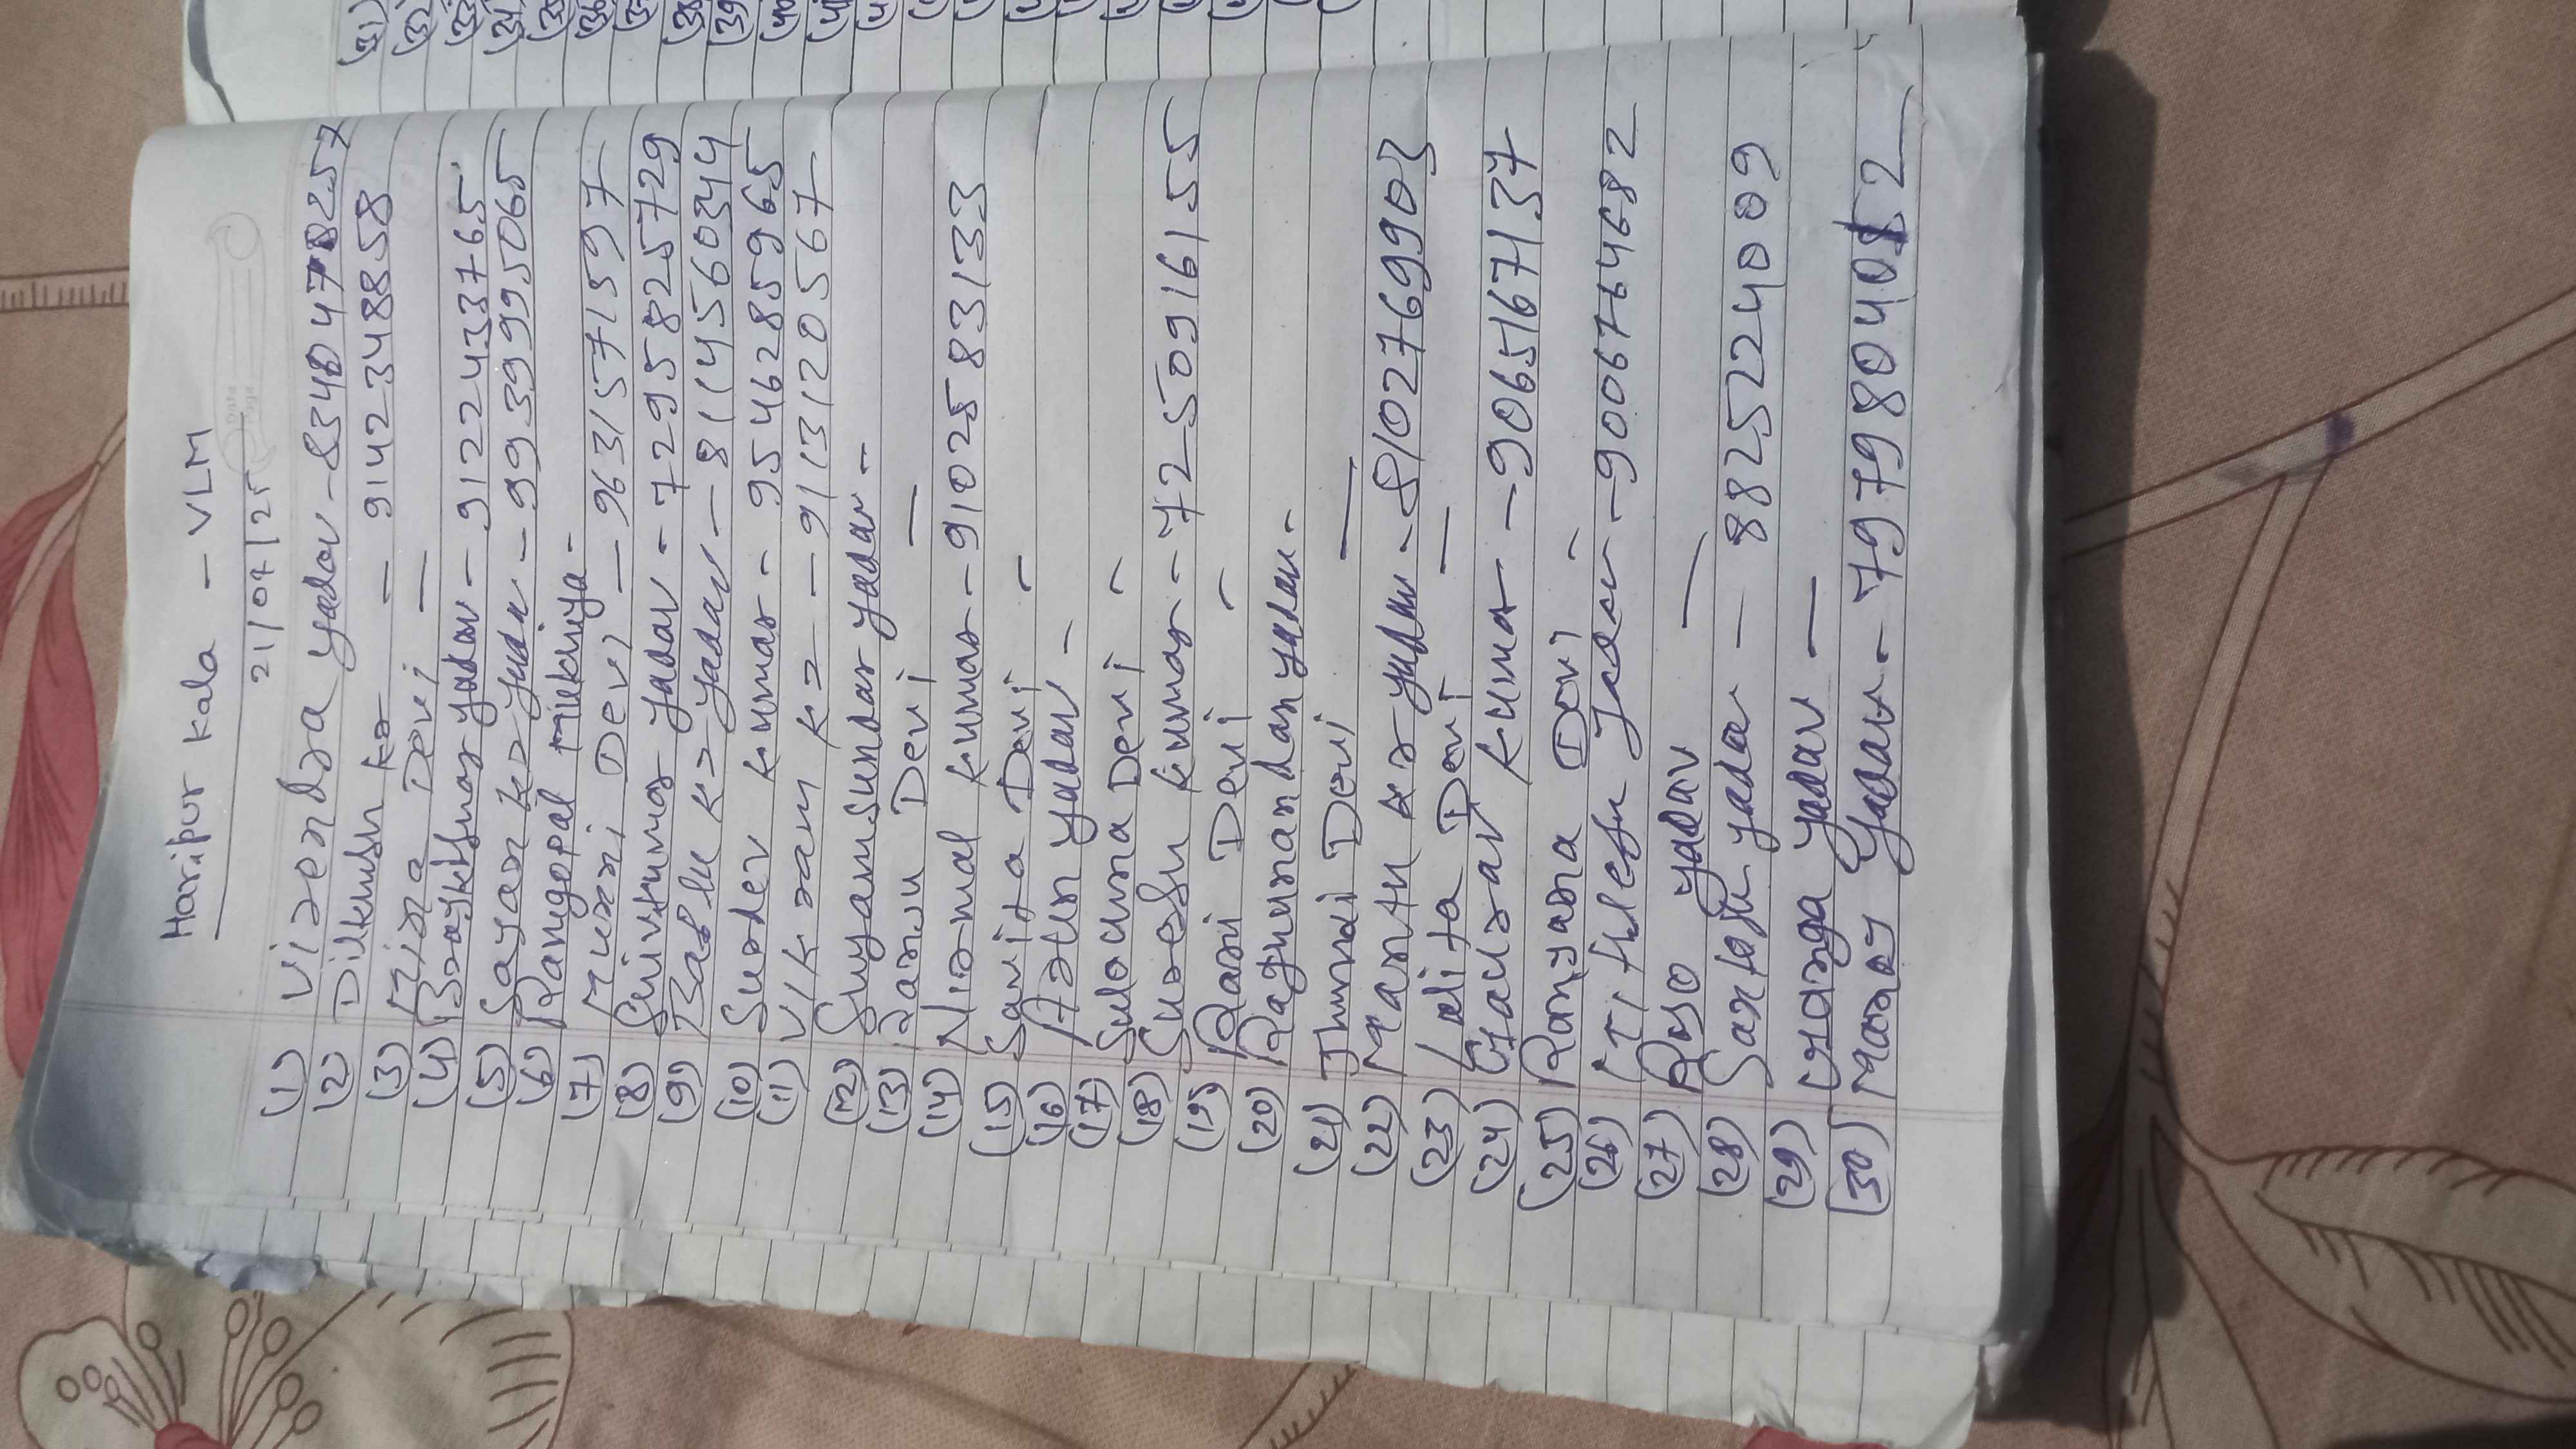 Haripur Kala - VLM
21/07/25
(1) Virendra Yadav - 8340478257
(2) Dilkhush Kr - 9142348858
(3) Mira Devi -
(4) Brajkishor Yadav - 9122433765
(5) Sajan Kr Yadav - 9939995065
(6) Ramgopal Mukhiya -
(7) Munni Devi - 9631571597
(8) Shivkumar Yadav - 7295825729
(9) Bablu Kr Yadav - 8114560344
(10) Sukdev Kumar - 9546285965
(11) Vikram Kr - 9113120567
(12) Shyamsundar Yadav -
(13) Devi -
(14) Nirmal Kumar - 9102583133
(15) Savita Devi -
(16) Yadav -
(17) Sulochna Devi -
(18) Suresh Kumar - 7250916155
(19) Rani Devi -
(20) Raghunandan Yadav -
(21) Jhunki Devi -
(22) Mantu Kr Yadav - 8102769903
(23) Lalita Devi -
(24) Gaurav Kumar - 9065167137
(25) Devi -
(26) Mithlesh Yadav - 9006764682
(27) Yadav -
(28) Santosh Yadav - 8825224009
(29) Yadav -
(30) Manoj Yadav -
(31)
(32
(39
(40